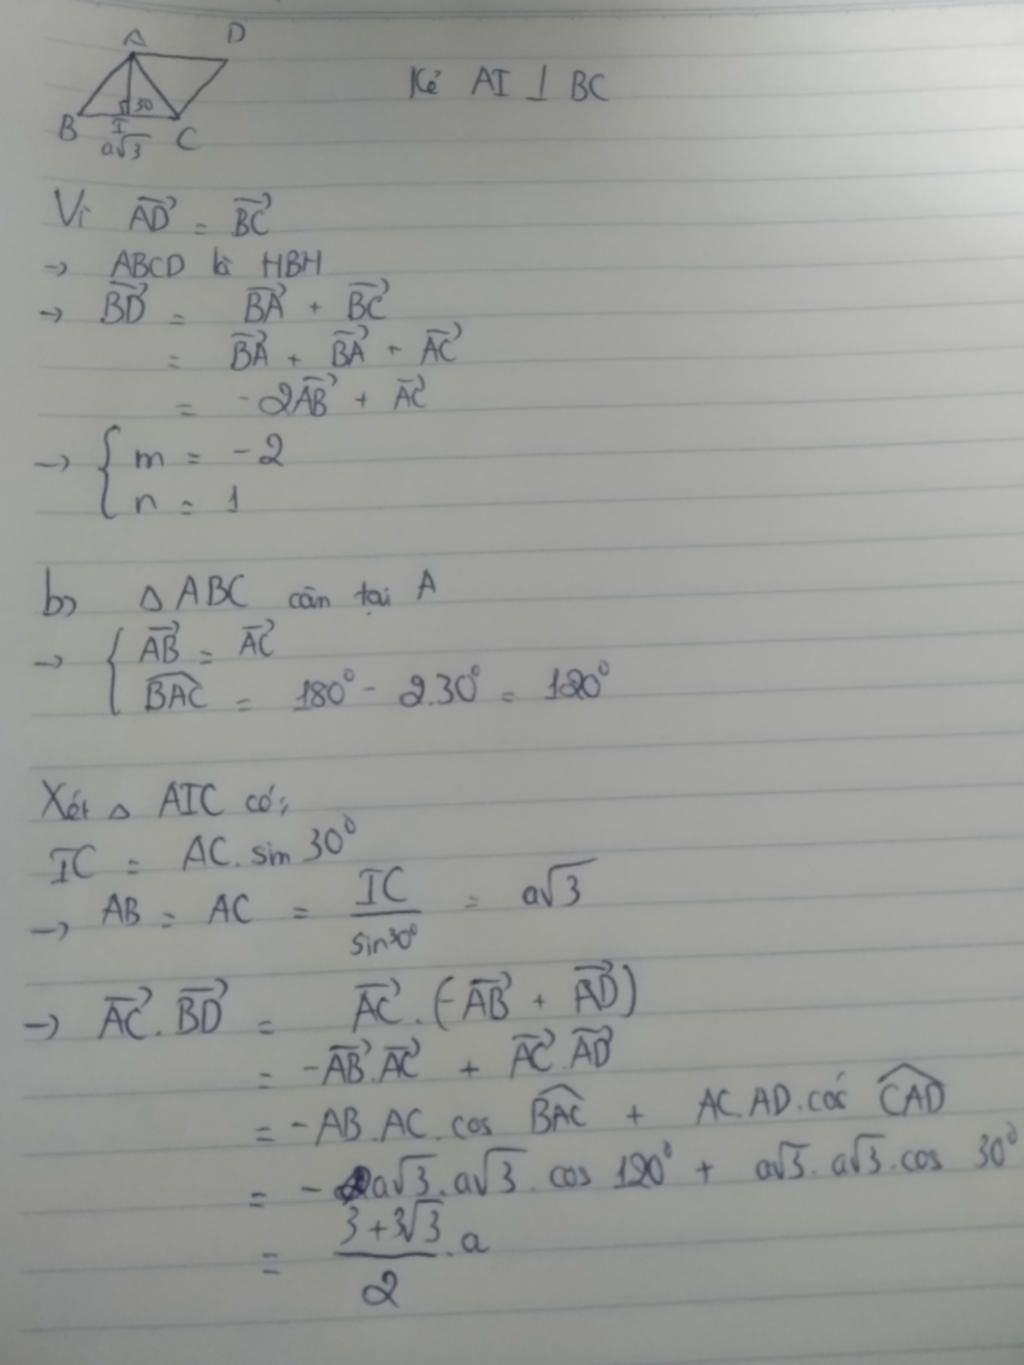 A D
Kẻ AI ⊥ BC
30
B I C
a√3
Vì AD⃗ = BC⃗
→ ABCD là HBH
→ BD⃗ = BA⃗ + BC⃗
= BA⃗ + BA⃗ + AC⃗
= -2AB⃗ + AC⃗
→ { m = -2
n = 1
b) Δ ABC cân tại A
→ { AB⃗ = AC⃗
BAC^ = 180° - 2.30° = 120°
Xét Δ AIC có:
IC = AC. sin 30°
→ AB = AC = IC / sin30° = a√3
→ AC⃗. BD⃗ = AC⃗. (-AB⃗ + AD⃗)
= -AB⃗.AC⃗ + AC⃗.AD⃗
= -AB.AC.cos BAC^ + AC.AD.cos CAD^
= - a√3.a√3.cos 120° + a√3.a√3.cos 30°
= (3+3√3) / 2 .a